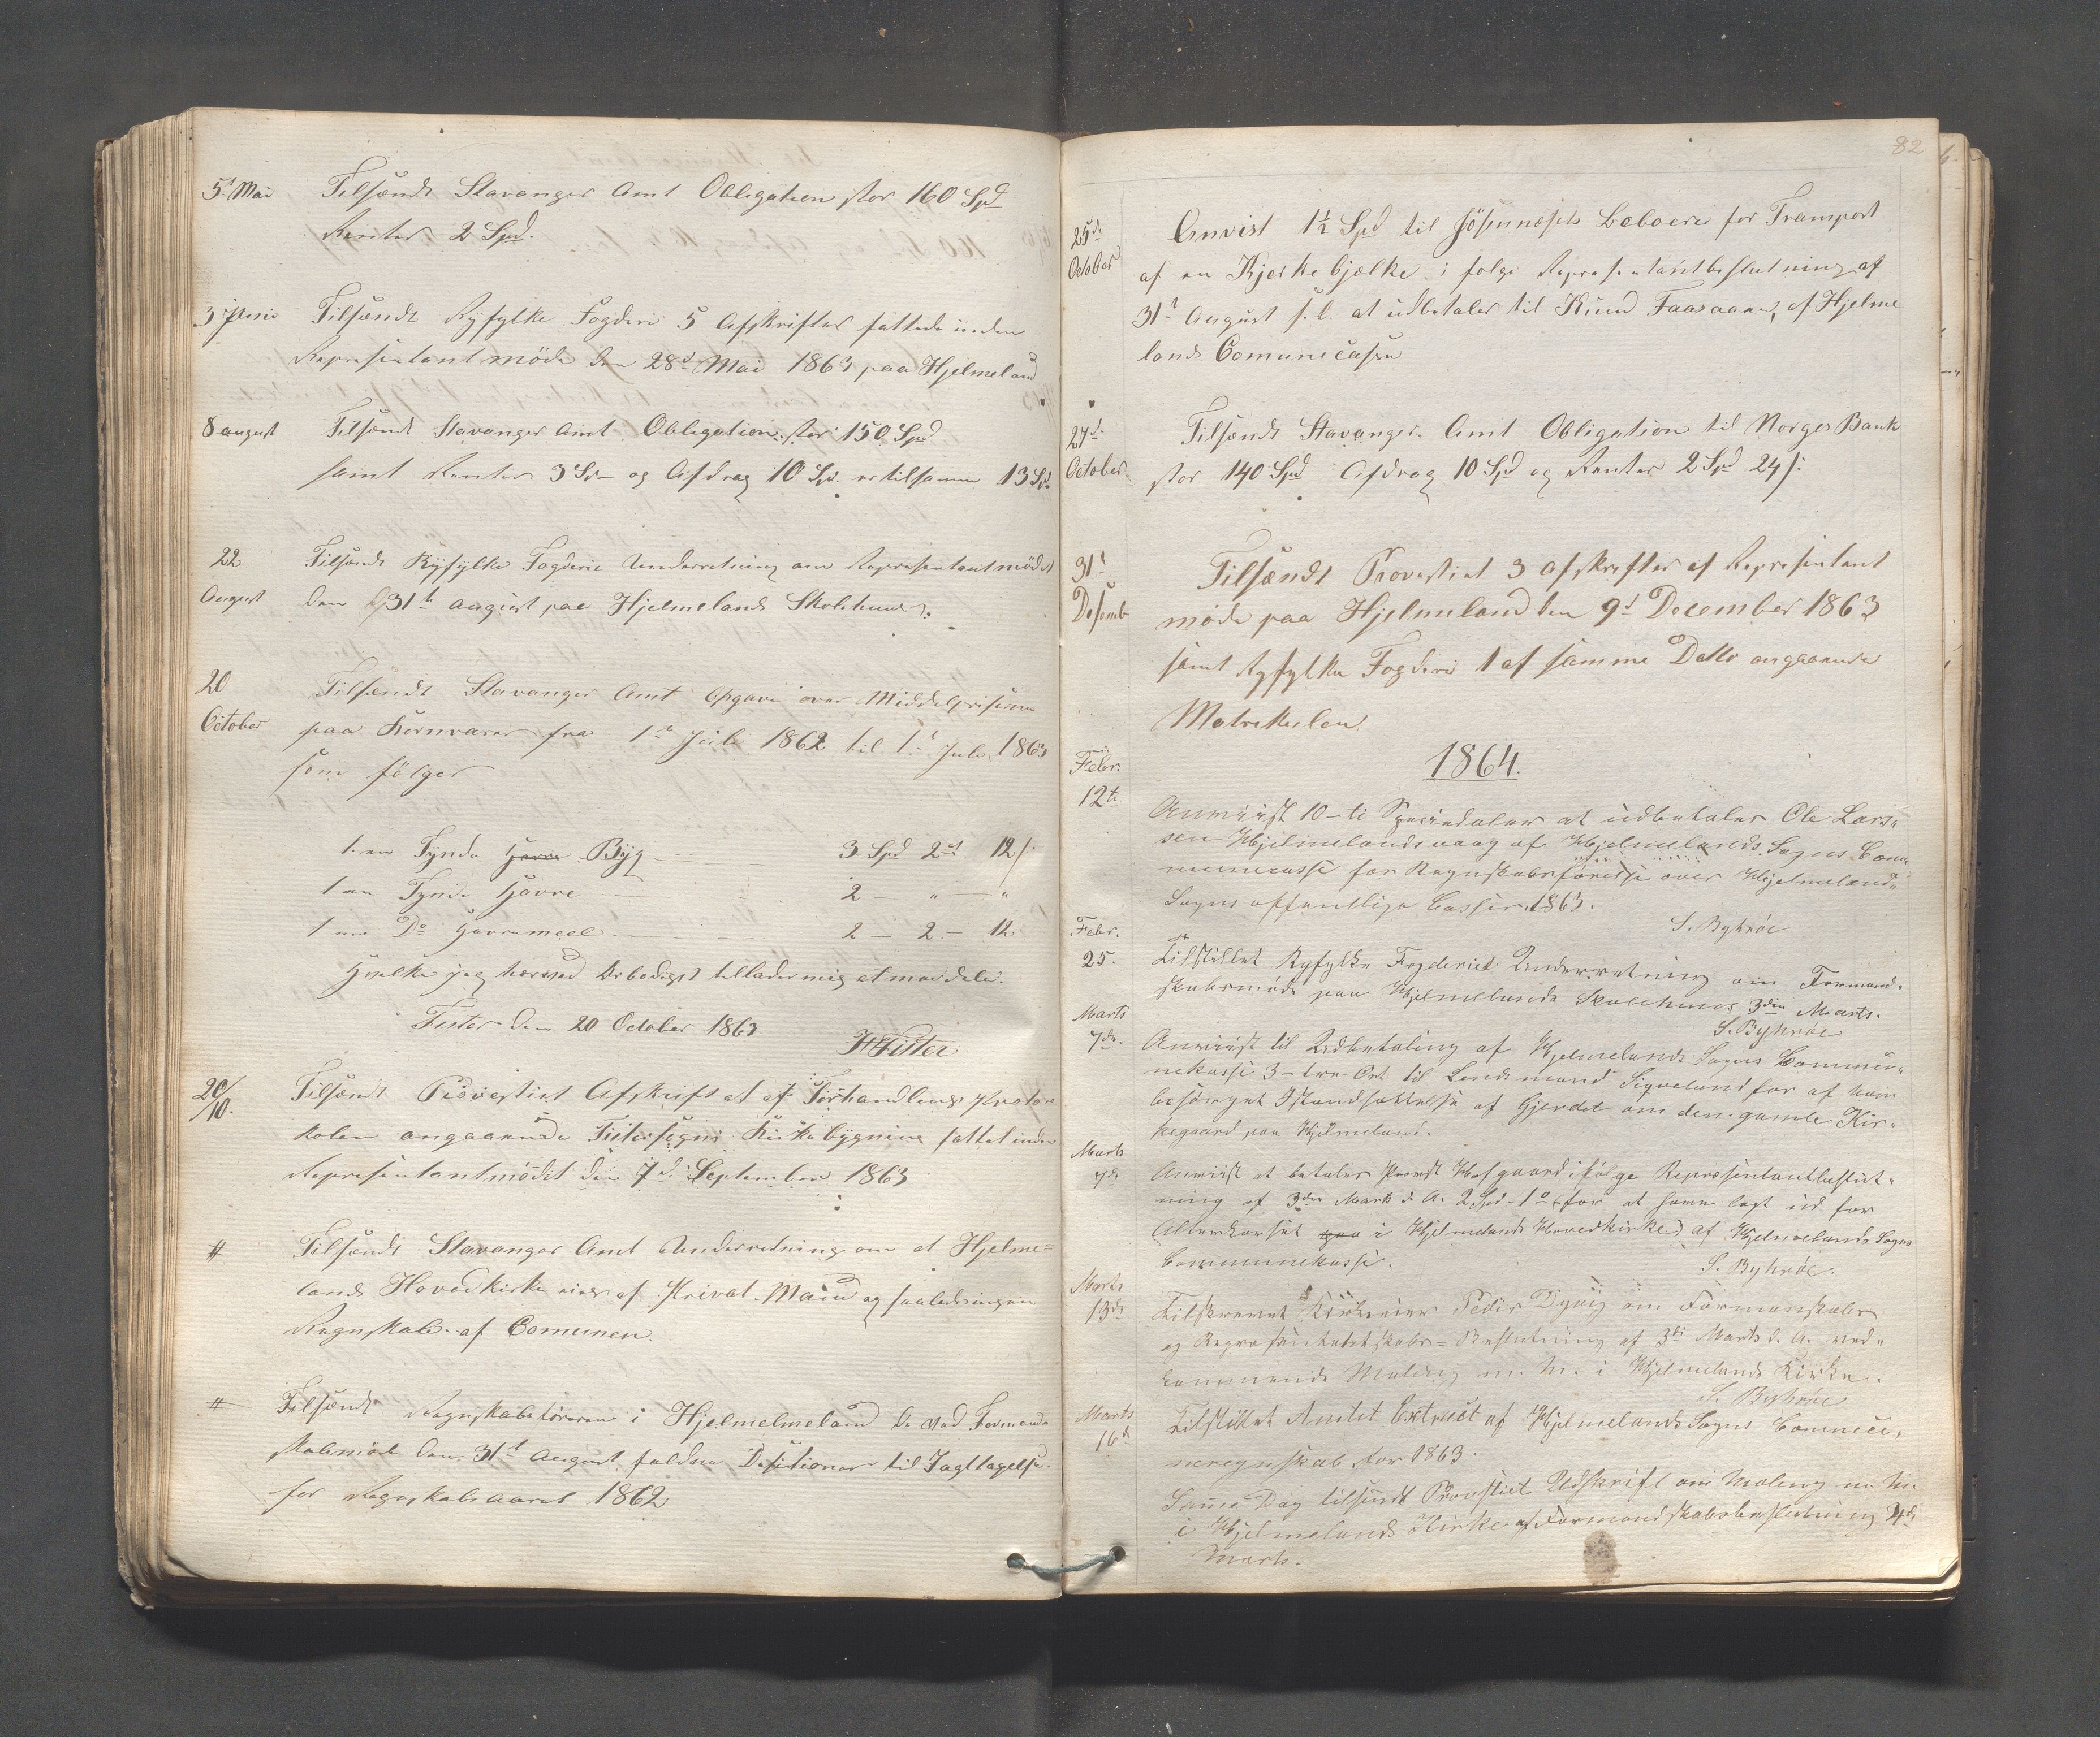 5' Mai Tilsændt Stavanger Amt Obligation stor 160 Spd
Renter 2 Spd.
3 Juni Tilsændt Ryfylke Fogderi 5 Afskrifter fattede under
Representantmöde den 28d Mai 1863 paa Hjelmeland
8 august Tilsændt Stavanger Amt Obligation stor 150 Spd
samt Renter 3 Spd og Afdrag 10 Spd er tilsamme 13 Spd
22 August Tilsændt Ryfylke Fogderie Underretning om Representantmödet
den 31t august paa Hjelmelands Skolehuus.
20 October Tilsændt Stavanger Amt Opgave over Middelpriserne
paa Kornvarer fra 1t Juli 1862 til 1t Juli 1863
som fölger
1 en Tynde Havre Byg 3 Spd 2 12 /
1 en Tynde Havre 2 — " — "
1 en Do Havremeel 2 — 2 — 12
Hvilke jeg herved Ærbødigst tillader mig at meddele.
Fister den 20 October 1863
H Fister
20/10. Tilsændt Provstiet Afskrift at af Forhandlings Proto
kolen angaaende Fister sogns Kirkebygning fattet under
Representantmödet den 7d September 1863
# Tilsændt Stavanger Amt Underretning om at Hjelme=
lands Hovedkirke eies af Privat Mand og saaledes ingen
Regnskab af Comunen.
# Tilsændt Regnskabsföreren i Hjelmelmeland De ved Formand
skabmöde den 31t August faldne Desitioner til Iagttagelse
for Regnskabsaaret 1862
82
25de October Anvist 1½ Spd til Jösennesets Beboere for Transport
af en Kjerkebjelke i fölge Representantbeslutning af
31t August f. l. at udbetales til Knud Faaraaen, af Hjelme
lands Comunecasse
27d October Tilsændt Stavanger Amt Obligation til Norges Bank
stor 140 Spd Afdrag 10 Spd og Renter 2 Spd 24 /:
31t Desemb Tilsændt Provstiet 3 afskrifter af Representant
möde paa Hjelmeland den 9d December 1863
samt Ryfylke Fogderi 1 af samme Datto angaaende
Matrikulen
1864.
Febr. 12te Anviist 10-ti Speciedaler at udbetales Ole Lars„
sen Hjelmelandsvaag af Hjelmelands Sogns Com„
munecasse for Regnskabsförelse over Hjelmelands
Sogns offentlige Casser 1863.
S. Byhröe
Febr. 25. Tilstillet Ryfylke Fogderiet Underretning om Formand„
skabsmöde paa Hjelmelands Skolehuus 3die Marts.
S. Byhröe
Marts 7de. Anviist til Udbetaling af Hjelmelands Sogns Commu„
nekasse 3-tre-Ort til Lensmand Sigveland for af ham
besörget Istandsættelse af Gjerdet om den gamle Kir„
kegaard paa Hjelmeland.
Marts 7de Anviist at betales Provst Hofgaard ifölge Repræsentantbeslut„
ning af 3die Marts d. A. 2 Spd - 1 o for at have lagt ud for
Altertörset paa i Hjelmelands Hovedkirke) af Hjelmelands Sogns
Commmunekasse.
S. Byhröe.
Marts 13de Tilskrevet Kirkeeier Peder Dyvig om Formanskabs
og Repræsentatskabs=Beslutning af 3de Marts d. A. ved„
kommende Maling m. M. i Hjelmelands Kirke.
S. Byhröe
Marts 16d Tilstillet Amtet Extract af Hjelmelands Sogns Commu„
neregnskab for 1863.
Samme Dag tilsendt Provstiet Udskrift om Maling m. M.
i Hjelmelands Kirke af Formandskabsbeslutning 3de
Marts.